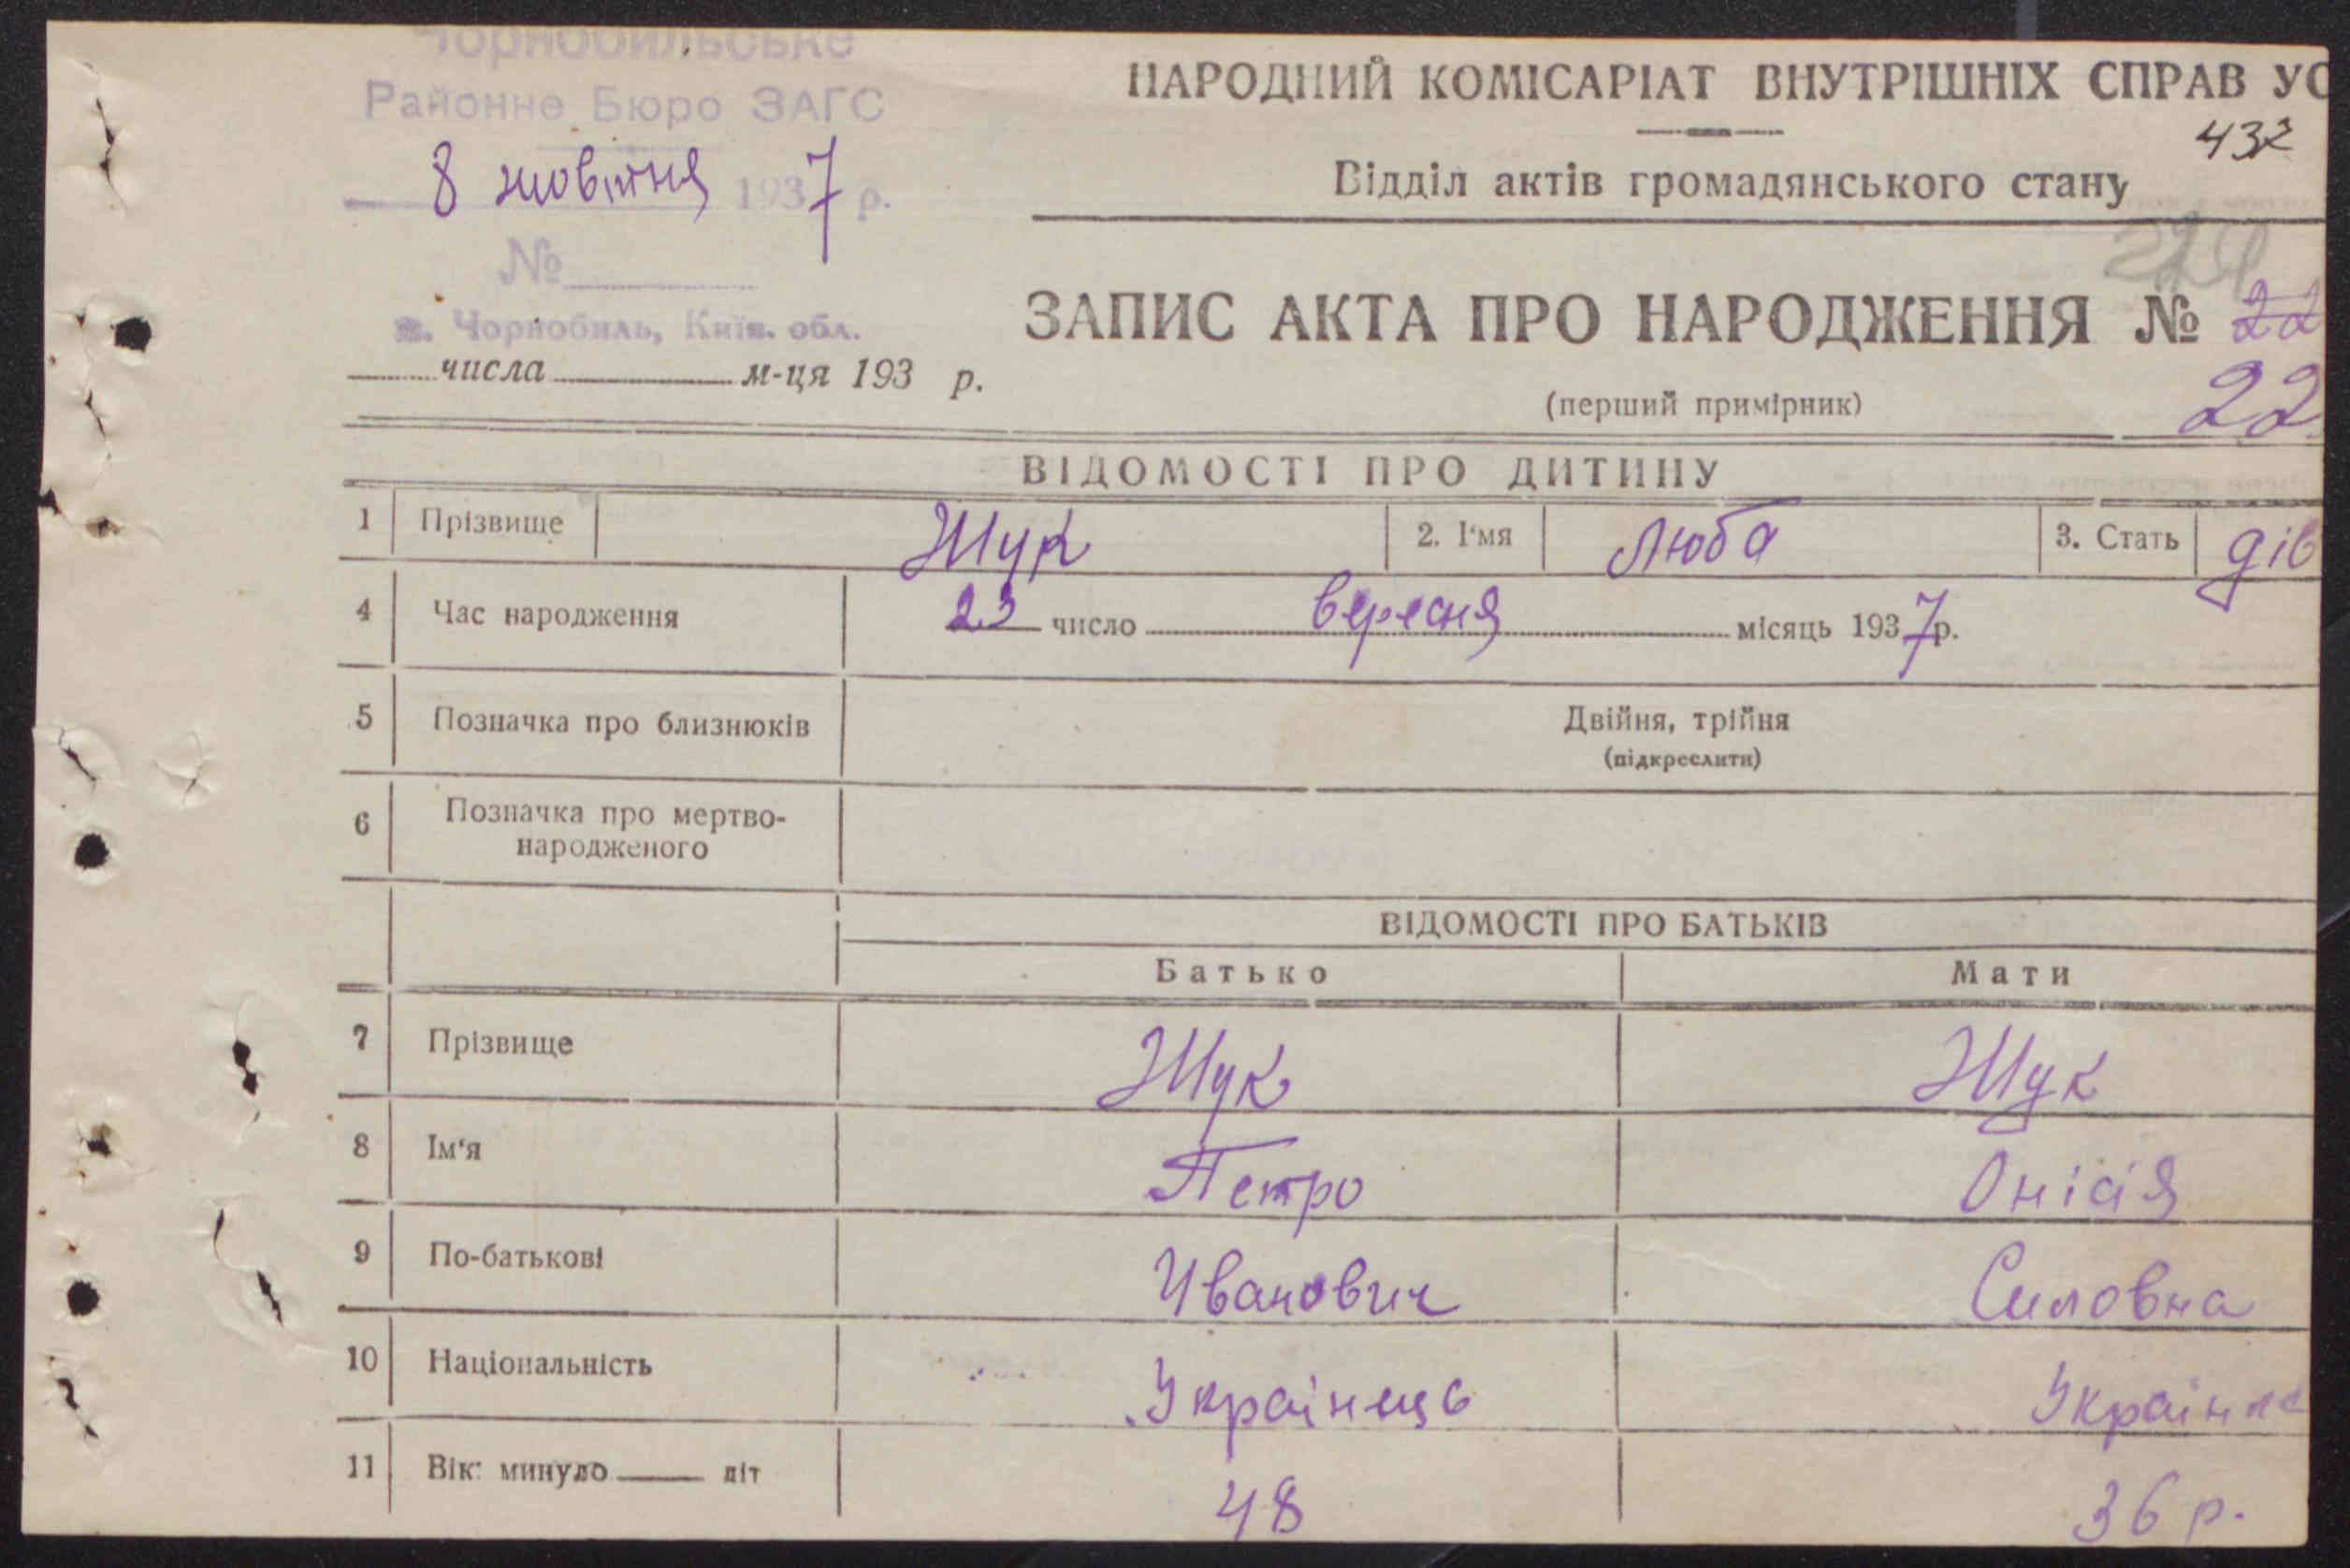 Чорнобильське
Районне Бюро ЗАГС
8 жовтня 1937 р.
№
м. Чорнобиль, Київ. обл.
числа м-ця 193 р.
НАРОДНИЙ КОМІСАРІАТ ВНУТРІШНІХ СПРАВ УС
432
Відділ актів громадянського стану
ЗАПИС АКТА ПРО НАРОДЖЕННЯ № 22
22
(перший примірник)
ВІДОМОСТІ ПРО ДИТИНУ
1 Прізвище Жук 2. І'мя Люба 3. Стать дів
4 Час народження 23 число вересня місяць 1937 р.
5 Позначка про близнюків Двійня, трійня
(підкреслити)
6 Позначка про мертво-
народженого
ВІДОМОСТІ ПРО БАТЬКІВ
Батько Мати
7 Прізвище Жук Жук
8 Ім'я Петро Онісія
9 По-батькові Иванович Силовна
10 Національність Українець Українка
11 Вік: минуло літ 48 36 р.